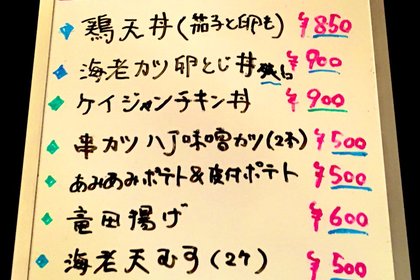 鶏天丼(茄子と卵も) ¥850
海老カツ卵とじ丼 残り ¥900
ケイジャンチキン丼 ¥900
串カツ 八丁味噌カツ(2本) ¥500
あみあみポテト&皮付ポテト ¥500
竜田揚げ ¥600
海老天むす(2ケ) ¥500